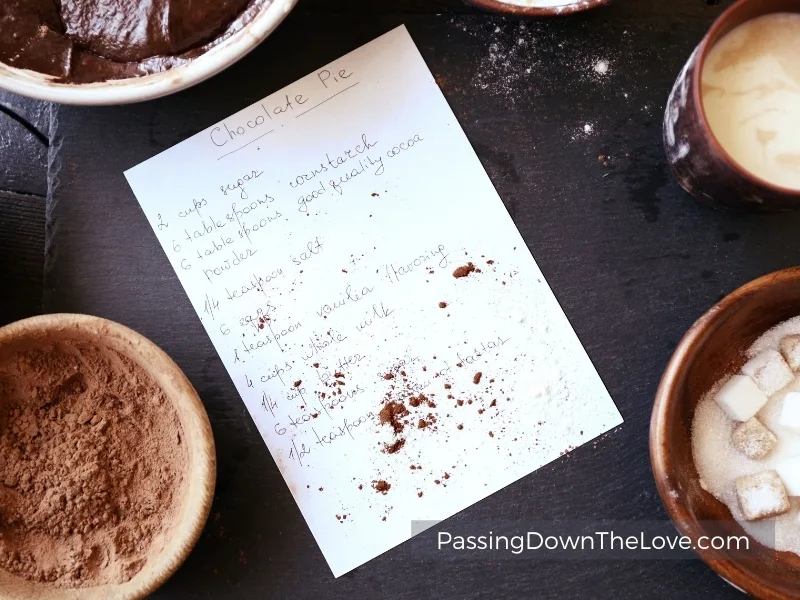 Chocolate Pie
2 cups sugar
6 tablespoons cornstarch
6 tablespoons good quality cocoa
powder
1/4 teaspoon salt
6 eggs
1 teaspoon vanilla flavoring
4 cups whole milk
1/4 cup butter
6 teaspoons sugar
1/2 teaspoon tartar
PassingDownTheLove.com